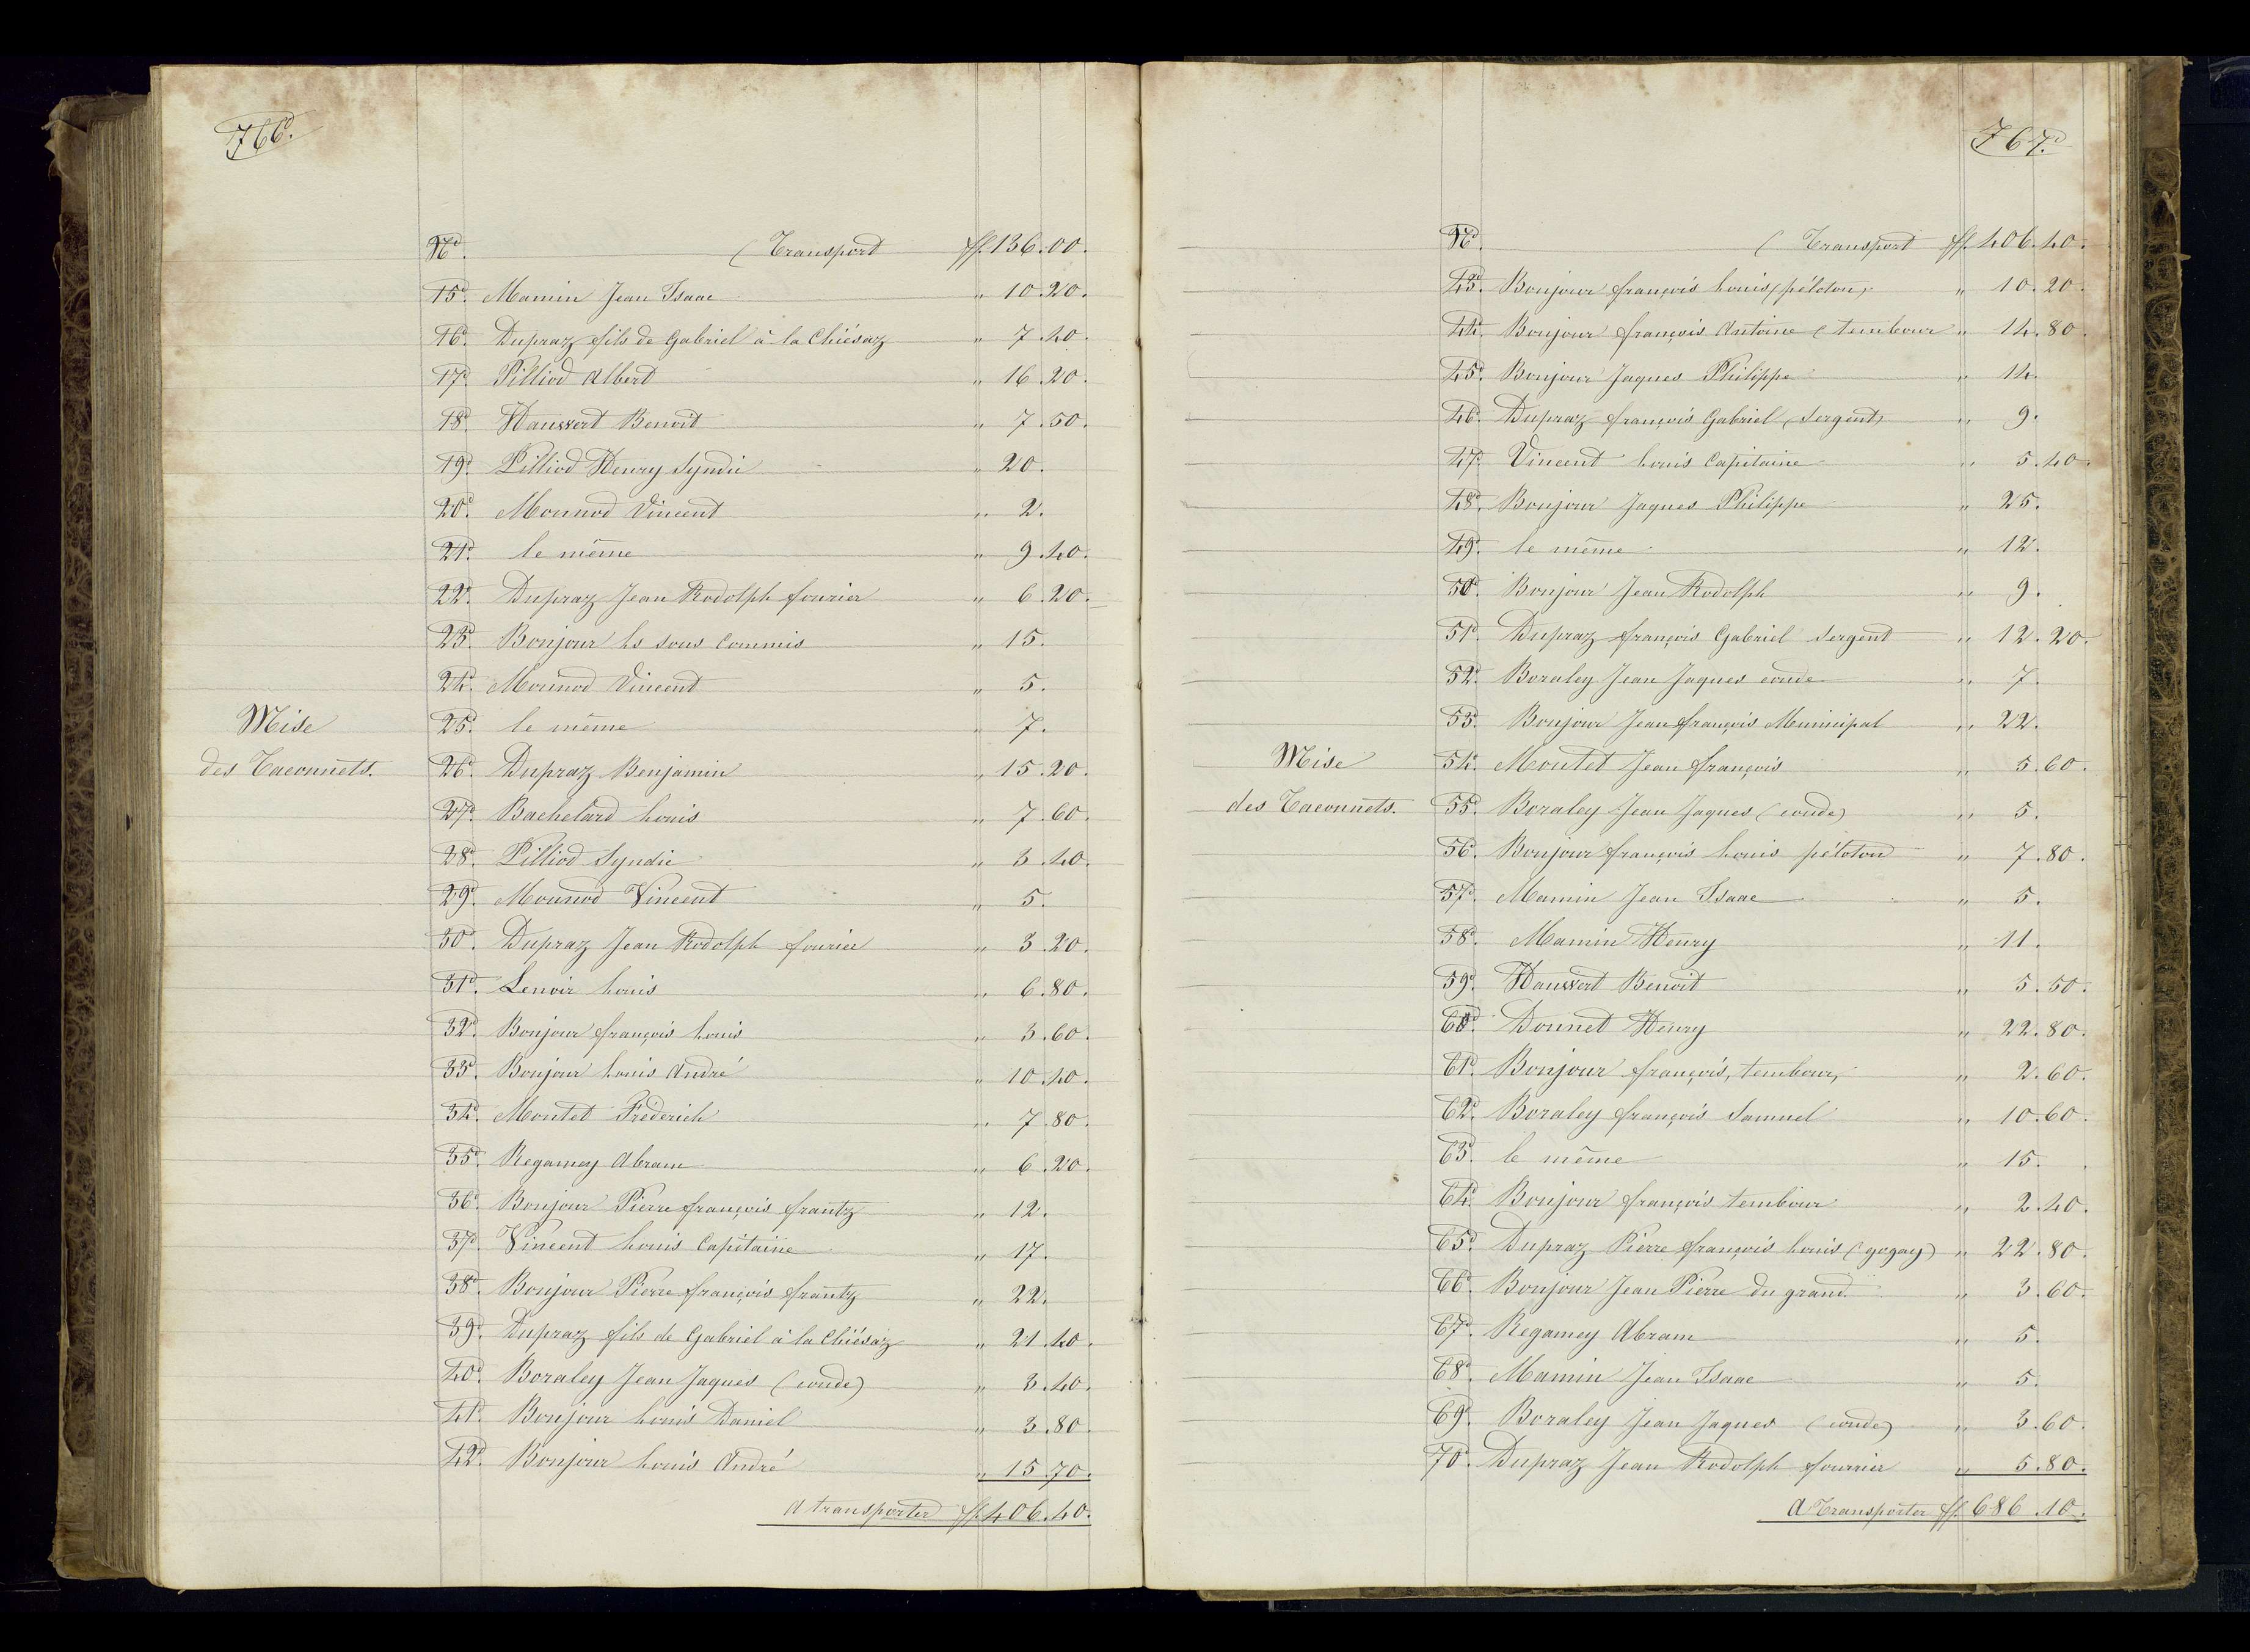 766.
No. (Transport ff. 136.00.
15. Mamin Jean Isaac " 10.20.
16. Dupraz fils de Gabriel à la Chiésaz " 7.40.
17. Pilliod Albert " 16.20.
18. Haussert Benoit " 7.50.
19. Pilliod Henry Syndic " 20.
20. Mounod Vincent " 2.
21. le même " 9.40.
22. Dupraz Jean Rodolph fourier " 6.20.
23. Bonjour Ls sous Commis " 15.
24. Mounod Vincent " 5.
Mise 25. le même " 7.
des Taconnets. 26. Dupraz Benjamin " 15.20.
27. Bachelard Louis " 7.60.
28. Pilliod Syndic " 3.40.
29. Mounod Vincent " 5.
30. Dupraz Jean Rodolph fourier " 3.20.
31. Lenoir Louis " 6.80.
32. Bonjour françois Louis " 3.60.
33. Bonjour Louis André " 10.40.
34. Montet Fréderich " 7.80.
35. Regamey Abram " 6.20.
36. Bonjour Pierre françois frantz " 12.
37. Vincent Louis Capitaine " 17.
38. Bonjour Pierre françois frantz " 22.
39. Dupraz fils de Gabriel à la Chiésaz " 21.40.
40. Boraley Jean Jaques (conde) " 3.40.
41. Bonjour Louis Daniel " 3.80.
42. Bonjour Louis André " 15.70.
A transporter ff. 406.40.
767.
No. (Transport ff. 406.40.
43. Bonjour françois Louis (péloton) " 10.20.
44. Bonjour françois Antoine (tembour " 14.80.
45. Bonjour Jaques Philippe " 14.
46. Dupraz françois Gabriel (Sergent) " 9.
47. Vincent Louis Capitaine " 5.40.
48. Bonjour Jaques Philippe " 25.
49. le même " 12.
50. Bonjour Jean Rodolph " 9.
51. Dupraz françois Gabriel Sergent " 12.20.
52. Boraley Jean Jaques conde " 7.
53. Bonjour Jean françois Municipal " 22.
Mise 54. Montet Jean françois " 5.60.
des Taconnets. 55. Boraley Jean Jaques (conde) " 5.
56. Bonjour françois Louis péloton " 7.80.
57. Mamin Jean Isaac " 5.
58. Mamin Henry " 11.
59. Haussert Benoit " 5.50.
60. Donnet Henry " 22.80.
61. Bonjour françois, tembour, " 2.60.
62. Boraley françois Samuel " 10.60.
63. le même " 15.
64. Bonjour françois tembour " 2.40.
65. Dupraz Pierre françois Louis (gogay) " 22.80.
66. Bonjour Jean Pierre du grand " 3.60.
67. Regamey Abram " 5.
68. Mamin Jean Isaac " 5.
69. Boraley Jean Jaques (conde) " 3.60.
70. Dupraz Jean Rodolph fourrier " 5.80.
A Transporter ff. 686.10.